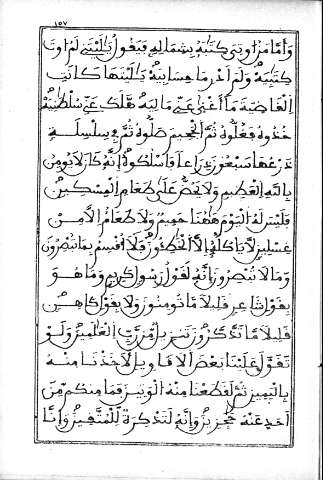 ١٥٧
وَأَمَّا مَنْ أُوتِيَ كِتَٰبَهُۥ بِشِمَالِهِۦ فَيَقُولُ يَٰلَيْتَنِي لَمْ أُوتَ
كِتَٰبِيَهْ وَلَمْ أَدْرِ مَا حِسَابِيَهْ يَٰلَيْتَهَا كَانَتِ
اِ۬لْقَاضِيَةَ مَا أَغْنَىٰ عَنِّي مَالِيَهْ هَلَكَ عَنِّي سُلْطَٰنِيَهْ
خُذُوهُ فَغُلُّوهُ ثُمَّ اَ۬لْجَحِيمَ صَلُّوهُ ثُمَّ فِي سِلْسِلَةٍ
ذَرْعُهَا سَبْعُونَ ذِرَاعاً فَاسْلُكُوهُ إِنَّهُۥ كَانَ لَا يُومِنُ
بِاللَّهِ اِ۬لْعَظِيمِ وَلَا يَحُضُّ عَلَىٰ طَعَامِ اِ۬لْمِسْكِينِ
فَلَيْسَ لَهُ اُ۬لْيَوْمَ هَٰهُنَا حَمِيمٌ وَلَا طَعَامٌ اِلَّا مِنْ
غِسْلِينٍ لَّا يَاكُلُهُۥ إِلَّا اَ۬لْخَٰطِـُٔونَ فَلَا أُقْسِمُ بِمَا تُبْصِرُونَ
وَمَا لَا تُبْصِرُونَ إِنَّهُۥ لَقَوْلُ رَسُولٍ كَرِيمٍ وَمَا هُوَ
بِقَوْلِ شَاعِرٍ قَلِيلاً مَّا تُومِنُونَ وَلَا بِقَوْلِ كَاهِنٍ
قَلِيلاً مَّا تَذَّكَّرُونَ تَنزِيلٌ مِّن رَّبِّ اِ۬لْعَٰلَمِينَ وَلَوْ
تَقَوَّلَ عَلَيْنَا بَعْضَ اَ۬لْأَقَاوِيلِ لَأَخَذْنَا مِنْهُ
بِالْيَمِينِ ثُمَّ لَقَطَعْنَا مِنْهُ اُ۬لْوَتِينَ فَمَا مِنكُم مِّنَ
اَحَدٍ عَنْهُ حَٰجِزِينَ وَإِنَّهُۥ لَتَذْكِرَةٌ لِّلْمُتَّقِينَ وَإِنَّا